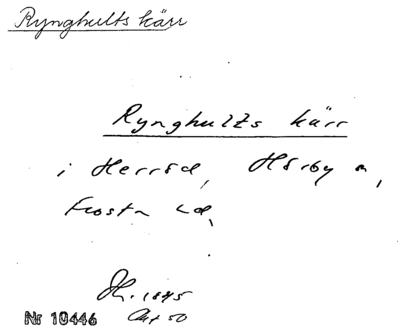 Rynghults kärr
Rynghults kärr
i Herröd, Hörby sn,
Frosta hd,
Nr 10446